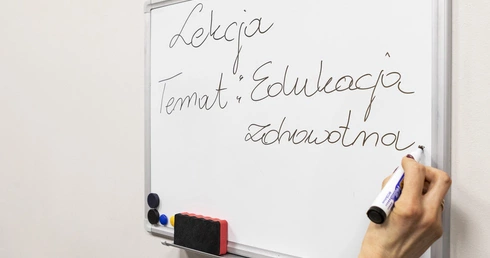 Lekcja
Temat: Edukacja
zdrowotna